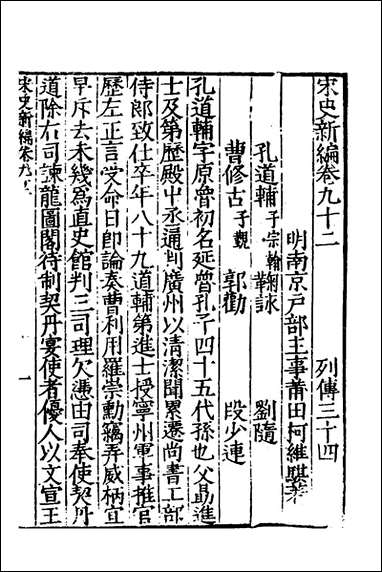 宋史新編卷九十二 列傳三十四
明南京戶部主事莆田柯維騏著
孔道輔 子宗翰 鞠詠 劉隨
曹修古 子覲 郭勸 段少連
孔道輔字原魯初名延魯孔子四十五代孫也父勗進
士及第歷殿中丞通判廣州以清潔聞累遷尚書工部
侍郎致仕卒年八十九道輔第進士授寧州軍事推官
歷左正言受命日即論奏曹利用羅崇勳竊弄威柄宜
早斥去未幾為直史館判三司理欠憑由司奉使契丹
道除右司諫龍圖閣待制契丹宴使者優人以文宣王
宋史新編卷九十二 一